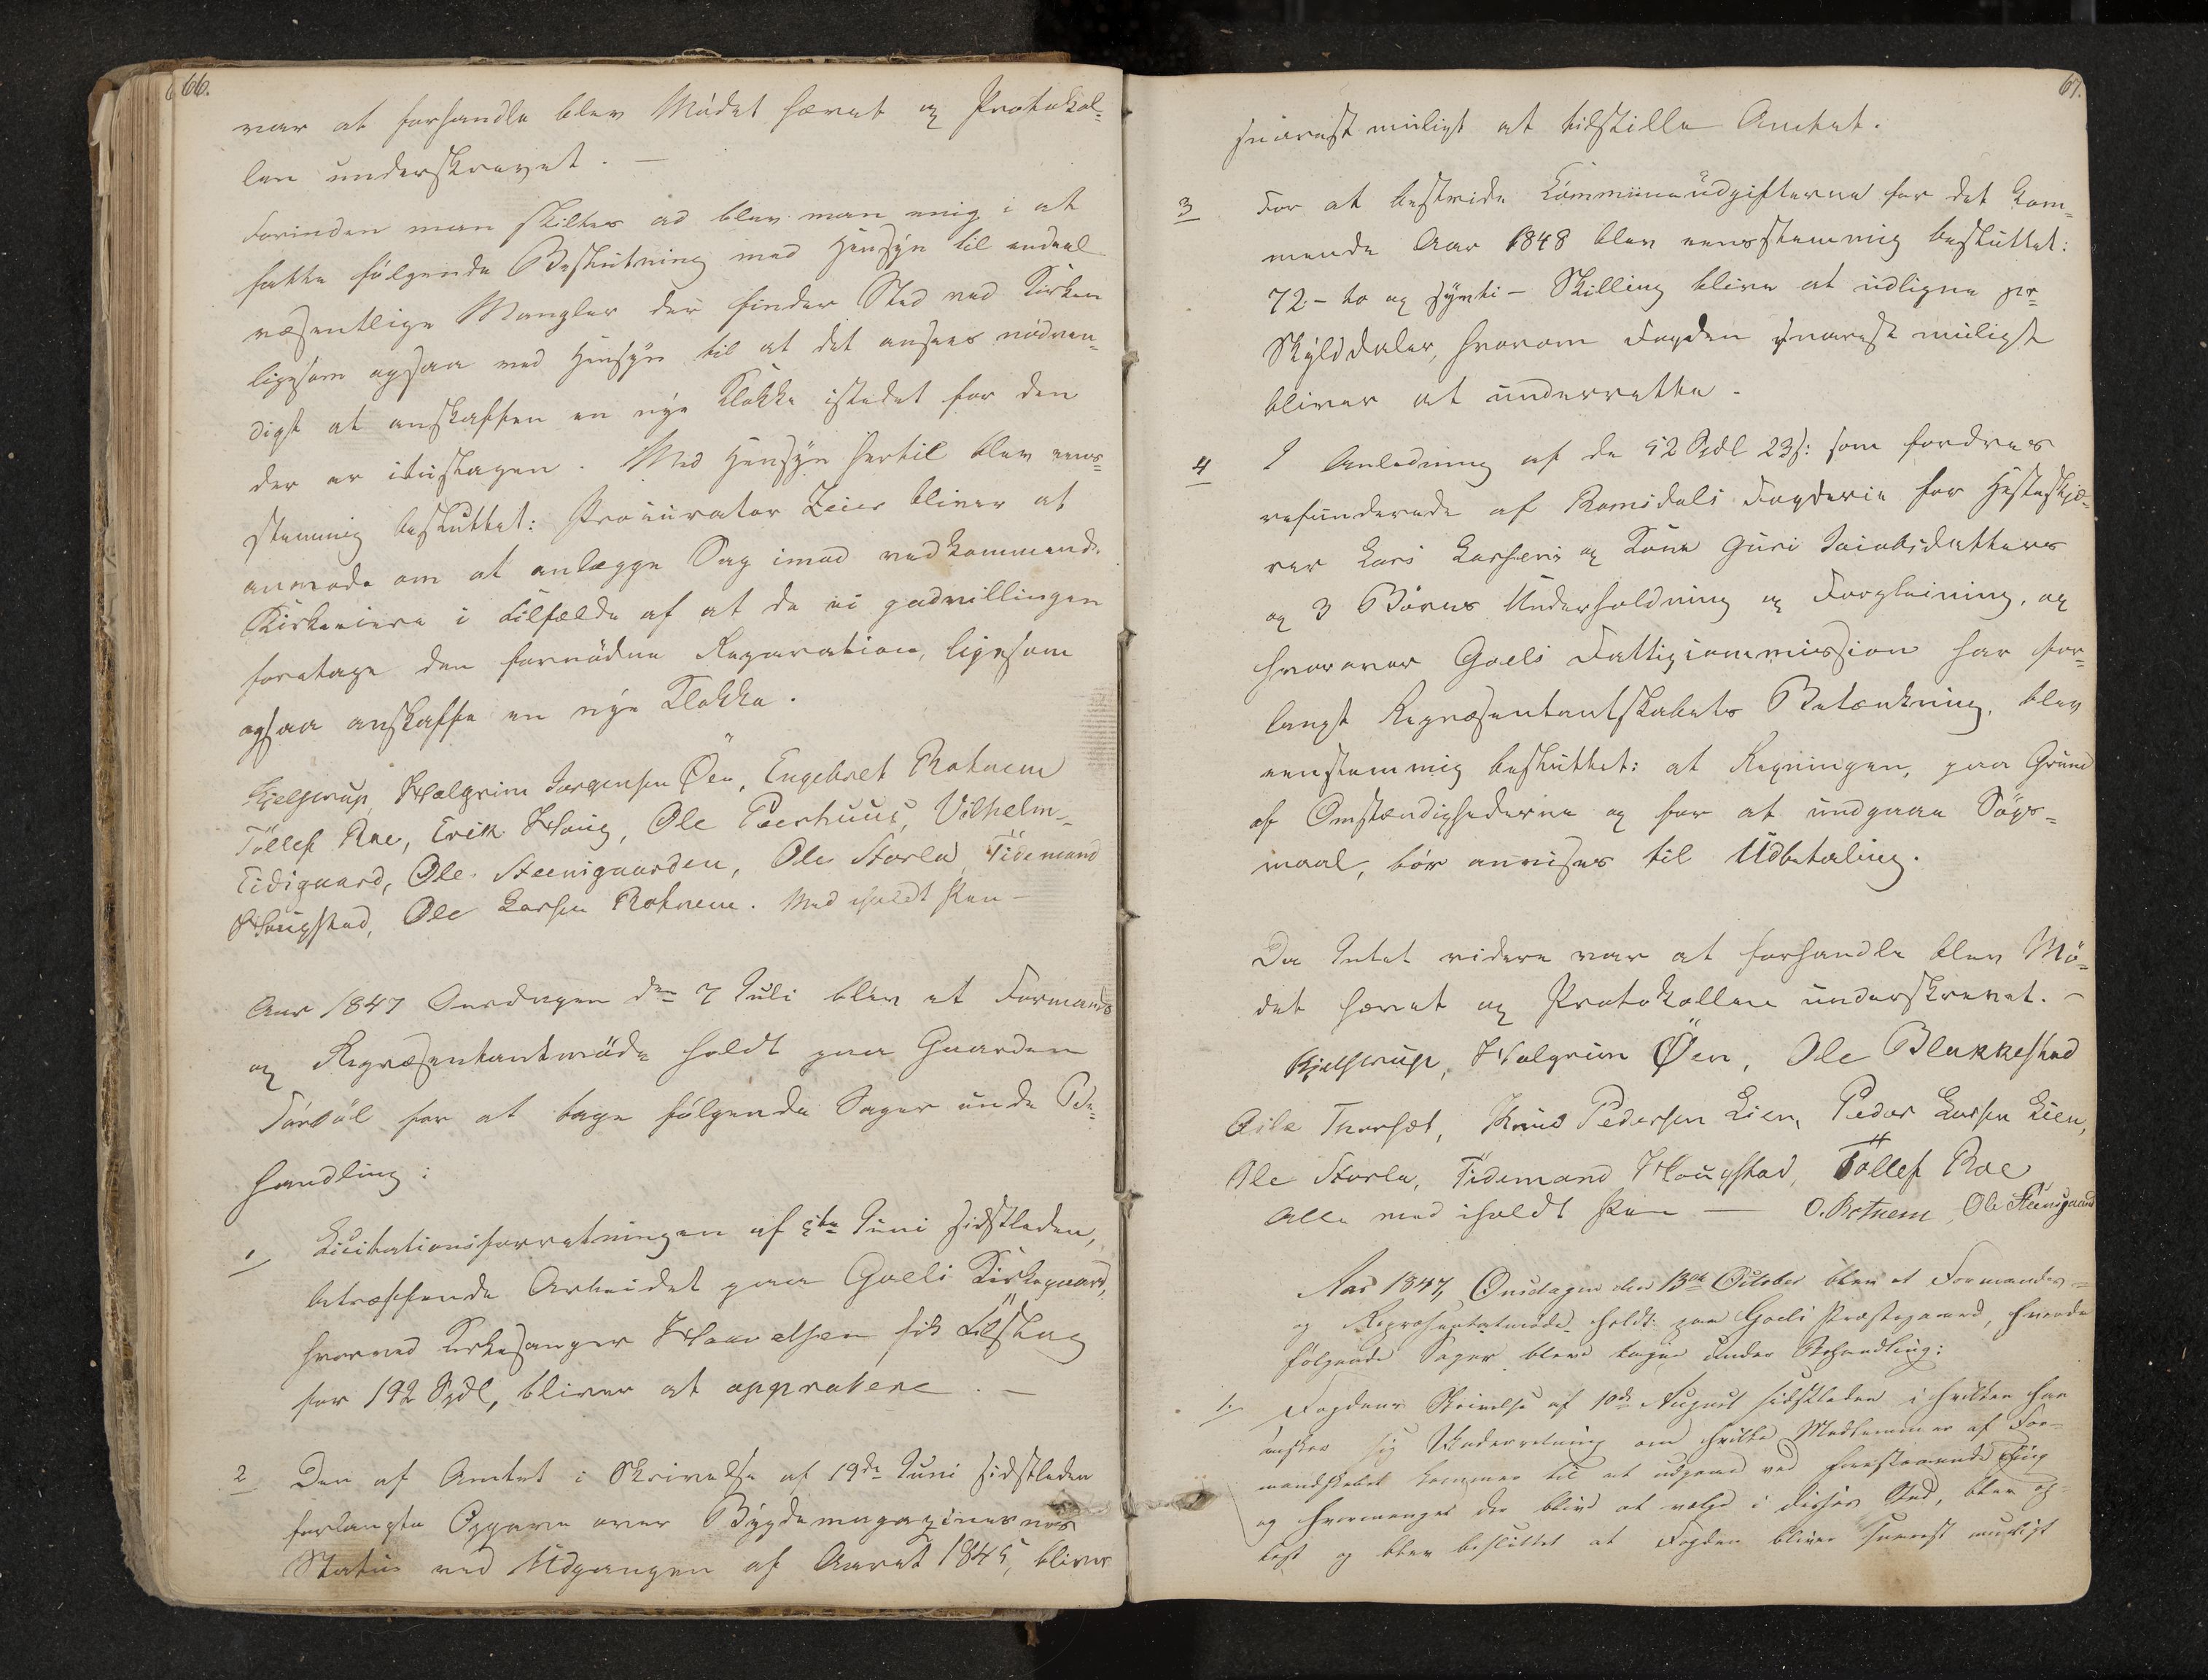 66.
var at forhandle blev Mödet hævet og Protokol-
len underskrevet. —
Forinden man skiltes ad blev man enig i at
fatte følgende Beslutning med Hensyn til endeel
væsentlige Mangler der finder Sted ved Kirken
ligesom ogsaa med Hensyn til at det ansees nödven-
digt at anskaffen en nye Klokke istedet for den
der er ituslagen. Med Hensyn hertil blev eens-
stemmig besluttet: Procurator Zeier bliver at
anmode om at anlægge Sag imod vedkommende
Kirkeeiere i Tilfælde af at de ei godvilligen
foretage den fornödne Reparation, ligesom
ogsaa anskaffe en nye Klokke.
Kjelstrup, Halgrim Jørgensen Öen, Engebret Rotnem
Tollef Roe, Erik Houg, Ole Peershuus, Vilhelm
Eidsgaard, Ole Steensgaarden, Ole Storla, Tidemand
Hougstad, Ole Larsen Rotnem. Med iholdt Pen —
Aar 1847 Onsdagen den 7 Juli blev et Formands
og Repræsentantmöde holdt paa Gaarden
for at tage følgende Sager unde Be-
handling:
1 Licitationsforretningen af 5te Juni sidstleden,
betræffende Arbeidet paa Goels Kirkegaard,
hvorved Kirkesanger fik Tilslag
for 192 Spdl, bliver at approbere. —
2 Den af Amtet i Skrivelse af 19de Juni sidstleden
forlangte Opgave over Bygdemagazinernes
Status ved Udgangen af Aaret 1845, bliver
67.
snarest muligt at tilstille Amtet.
3 For at bestride Kommuneudgifterne for det kom-
mende Aar 1848 blev eensstemmig besluttet:
72 - to og syvti - Skilling blive at udligne pr
Skylddaler, hvorom Fogden snarest muligst
bliver at underrette.
4 I Anledning af de 52 Spdl 23 s: som fordres
refunderede af Romsdals Fogderie for Hesteskjæ-
rer Lars Larsens og Kone Guri Jacobsdatters
og 3 Börns Underholdning og Forpleining, og
hvorover Goels Fattigcommission har for-
langt Repræsentantskabets Betænkning, blev
eenstemmig besluttet: at Regningen, paa Grund
af Omstændighederne og for at undgaae Sögs-
maal, bör anvises til Udbetaling.
Da Intet videre var at forhandle blev Mö-
det hævet og Protokollen underskrevet. —
Kjelstrup, Halgrim Öen, Ole Blakkestad
Thorset, Knud Pedersen Lien, Peder Larsen Lien,
Ole Storla, Tidemand Hougstad, Tollef Roe
Alle med iholdt Pen — O. Rotnem, Ole Steensgaard
Aar 1847, Onsdagen den 13de October blev et Formands-
og Repræsentantmöde holdt paa Goels Præstegaard, hvorda
følgende Sager bleve tagne under Behandling:
1. Fogdens Skrivelse af 10de August sidstleden i hvilken han
ønsker sig Underretning om hvilke Medlemmer af For-
mandskabet kommer til at udgaae ved forestaaende Ting
og hvormange der blive at vælge i disses Sted, blev op-
læst og blev besluttet at Fogden bliver snarest muligst